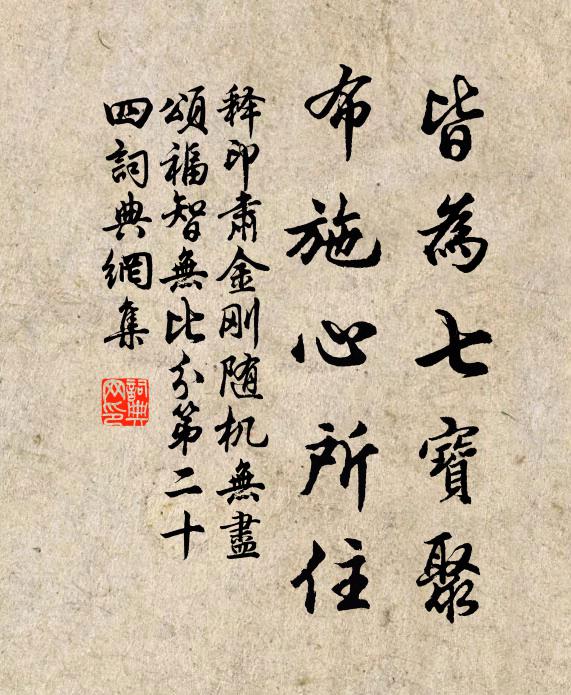 皆為七寶聚
布施心所住
釋印肅金刚随机無盡
頌福智無比分第二十
四詞典網集
詞典
网印